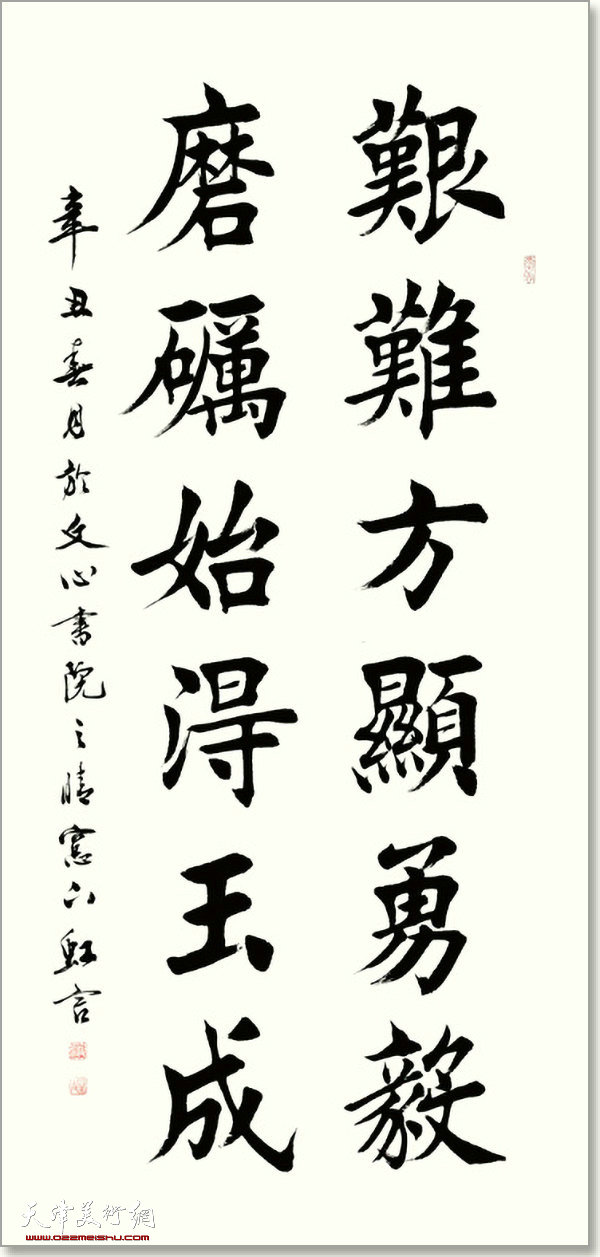 艱難方顯勇毅
磨礪始得玉成
辛丑春月於文心書院之晴窗下虹言
天津美術網
www.022meishu.com